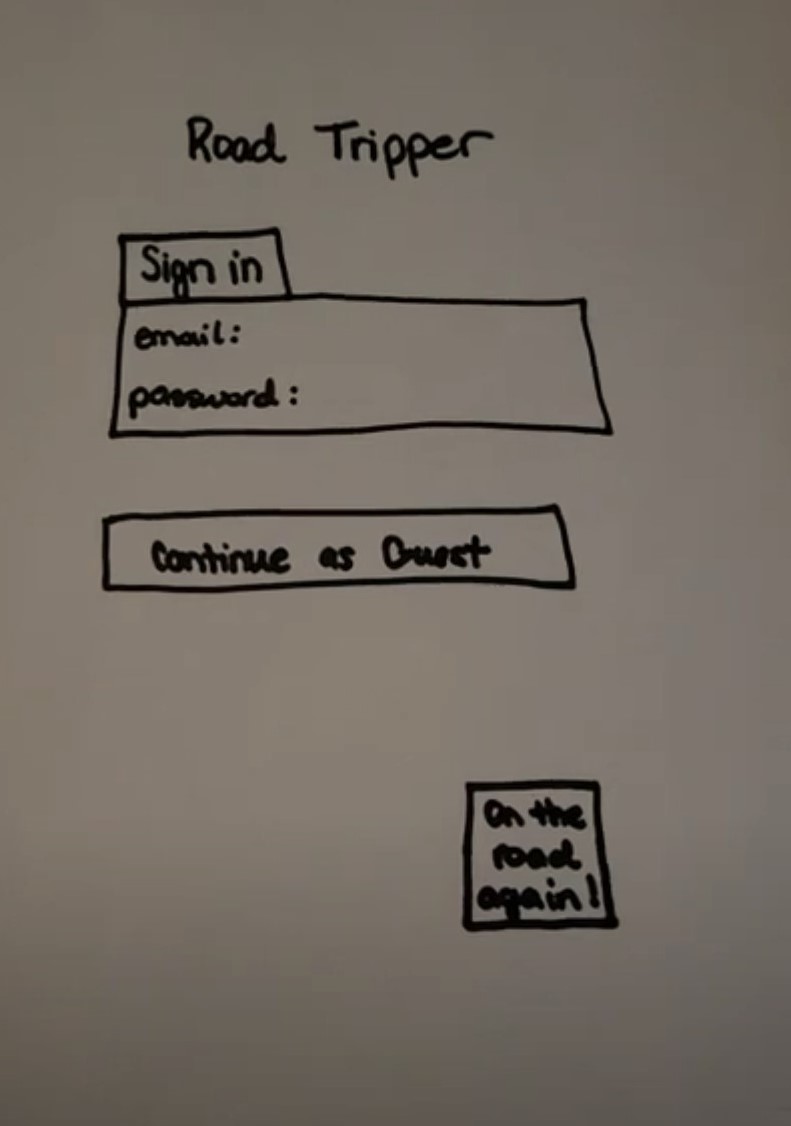 Road Tripper
Sign in
email:
password:
Continue as Guest
On the
road
again!